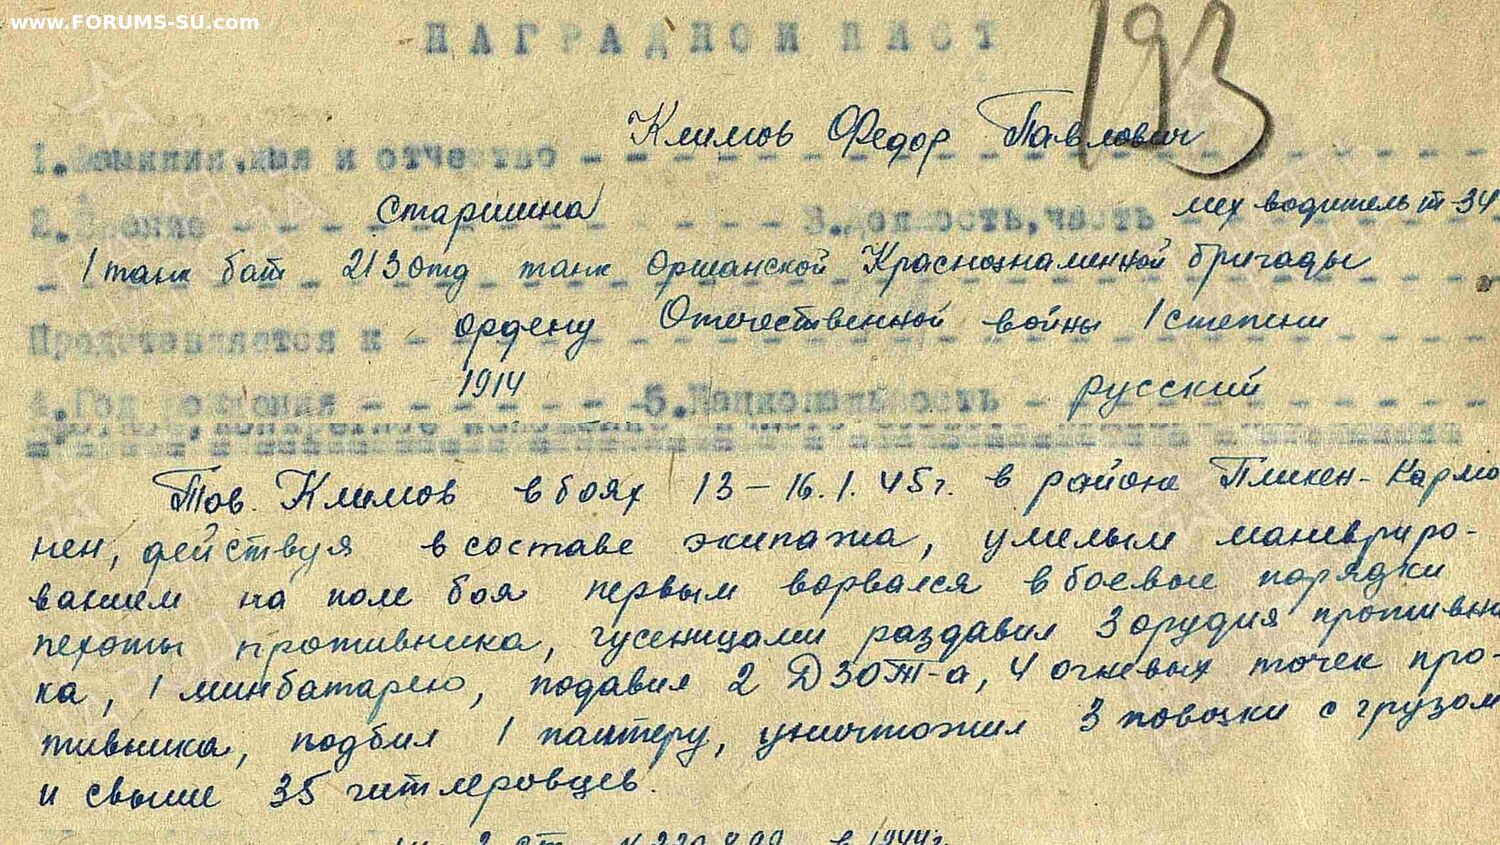 www.FORUMS-SU.com
НАГРАДНОЙ ЛИСТ
193
Климов Федор Павлович
1. Фамилия, имя и отчество - - - - - - - - - -
старшина мех водитель т-34
2. Звание - - - - - - - 3. Должность, часть - - - -
1 танк бат 213 отд танк Оршанской Краснознаменной бригады
ордену Отечественной войны 1 степени
Представляется к - - - - - - - - - -
1914 русский
4. Год рождения - - - - - - 5. Национальность - - - - -
Тов. Климов в боях 13 – 16.1.45 г. в районе Пликен-Кармо
нен, действуя в составе экипажа, умелым маневриро-
ванием на поле боя первым ворвался в боевые порядки
пехоты противника, гусеницами раздавил 3 орудия противни
ка, 1 минбатарею, подавил 2 ДЗОТ-а, 4 огневых точек про-
тивника, подбил 1 пантеру, уничтожил 3 повозки с грузом
и свыше 35 гитлеровцев.
в 1944г.